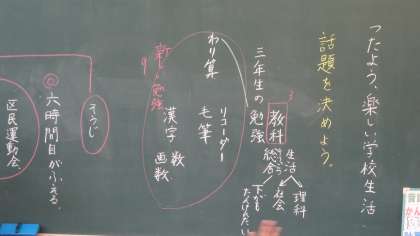 つたよう、楽しい学校生活
話題を決めよう。
三年生の勉強
教科
3
生活
総合
理科
社会
わり算
リコーダー
毛筆
漢字
数
画数
新しい勉強
9
そうじ
六時間目がふえる。
区民運動会